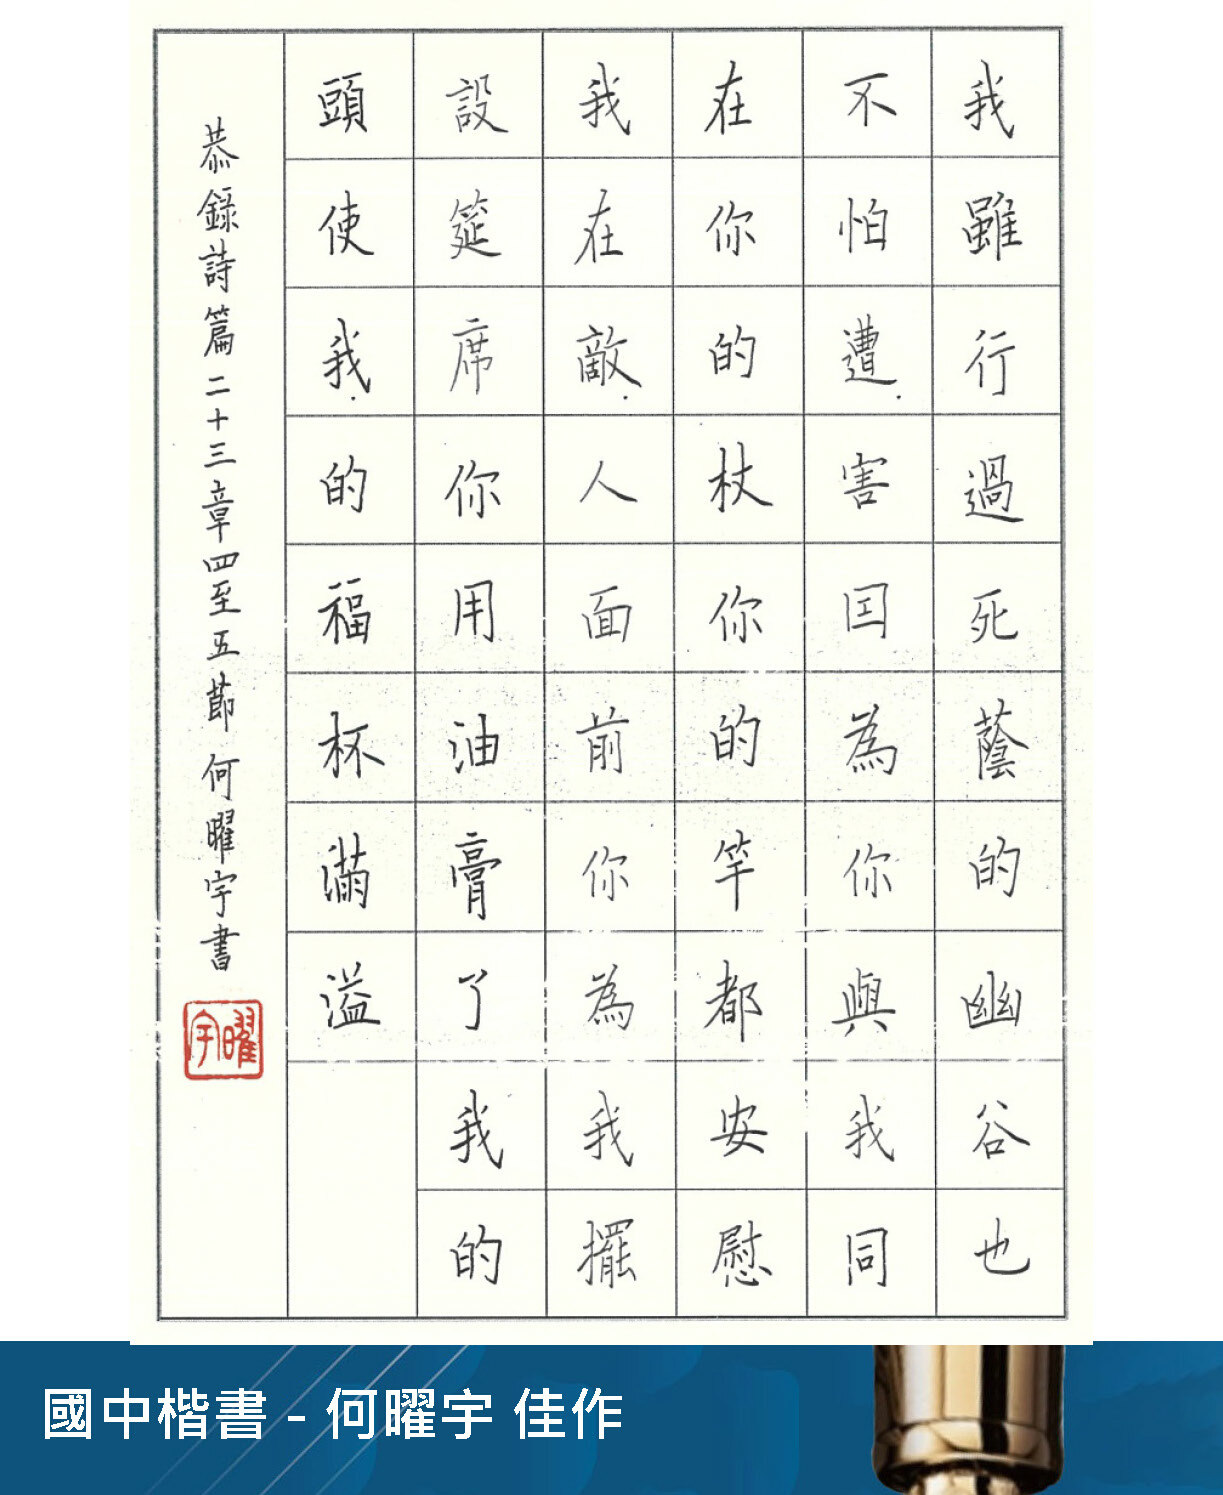 我雖行過死蔭的幽谷也
不怕遭害因為你與我同
在你的杖你的竿都安慰
我在敵人面前你為我擺
設筵席你用油膏了我的
頭使我的福杯滿溢
恭錄詩篇二十三章四至五節何曜宇書
曜宇
國中楷書 - 何曜宇 佳作